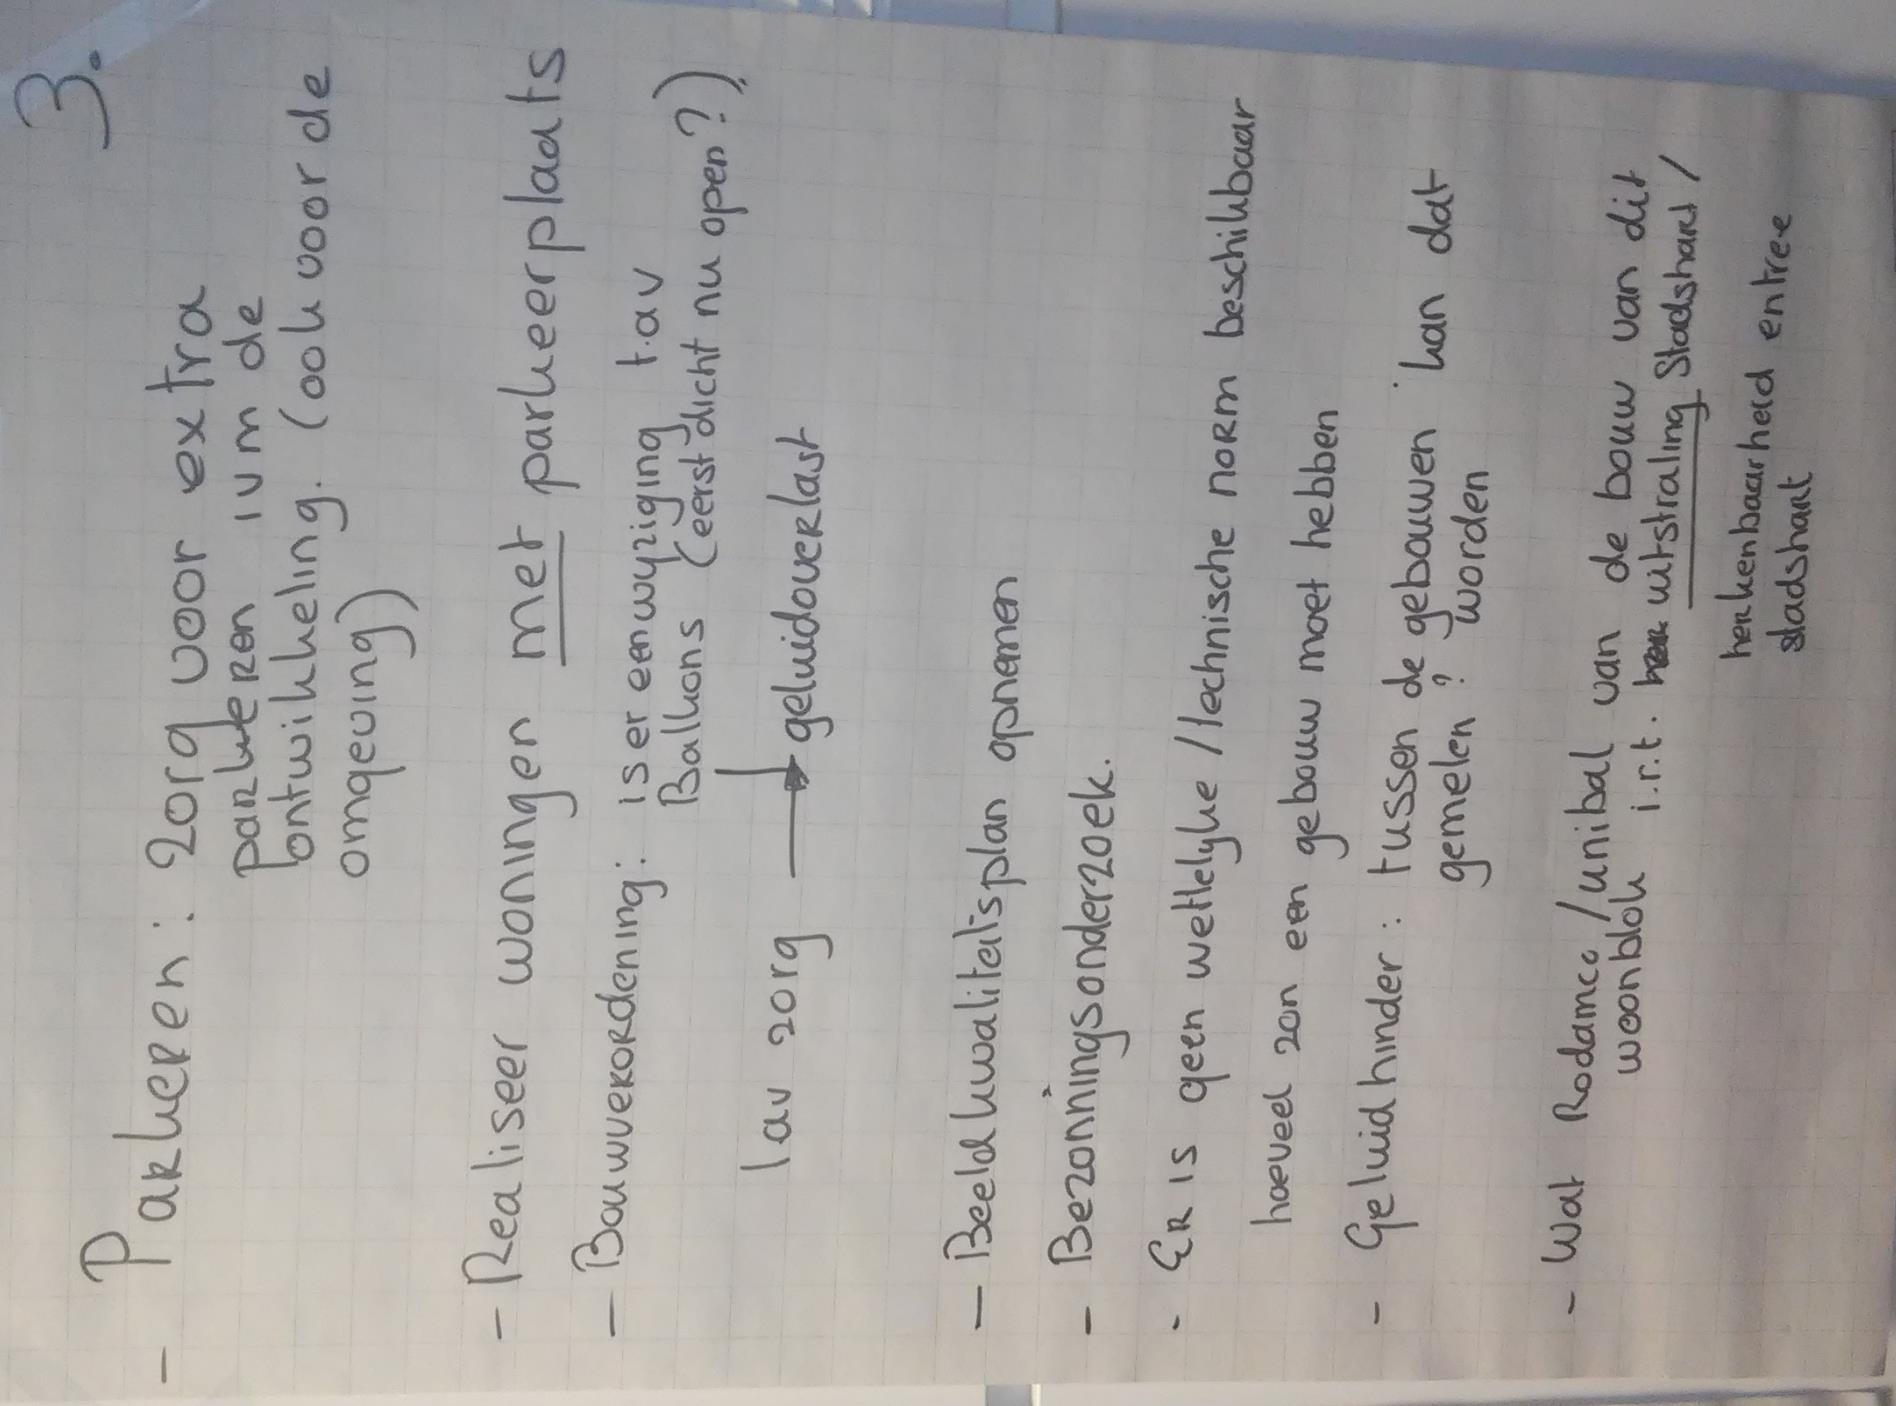 3.
- Parkeren: zorg voor extra
parkeren ivm de
ontwikkeling. (ook voor de
omgeving)
- Realiseer woningen met parkeerplaats
- Bouwverordening: is er een wijziging t.av
Balkons (eerst dicht nu open?)
iav zorg → geluidoverlast
- Beeldkwaliteitsplan opnemen
- Bezonningsonderzoek.
- Er is geen wettelijke/technische norm beschikbaar
hoeveel zon een gebouw moet hebben
- Geluidhinder: tussen de gebouwen kan dat
gemeten? worden
- Wat Rodamco/unibal van de bouw van dit
woonblok i.r.t. uitstraling Stadshart/
herkenbaarheid entree
stadshart